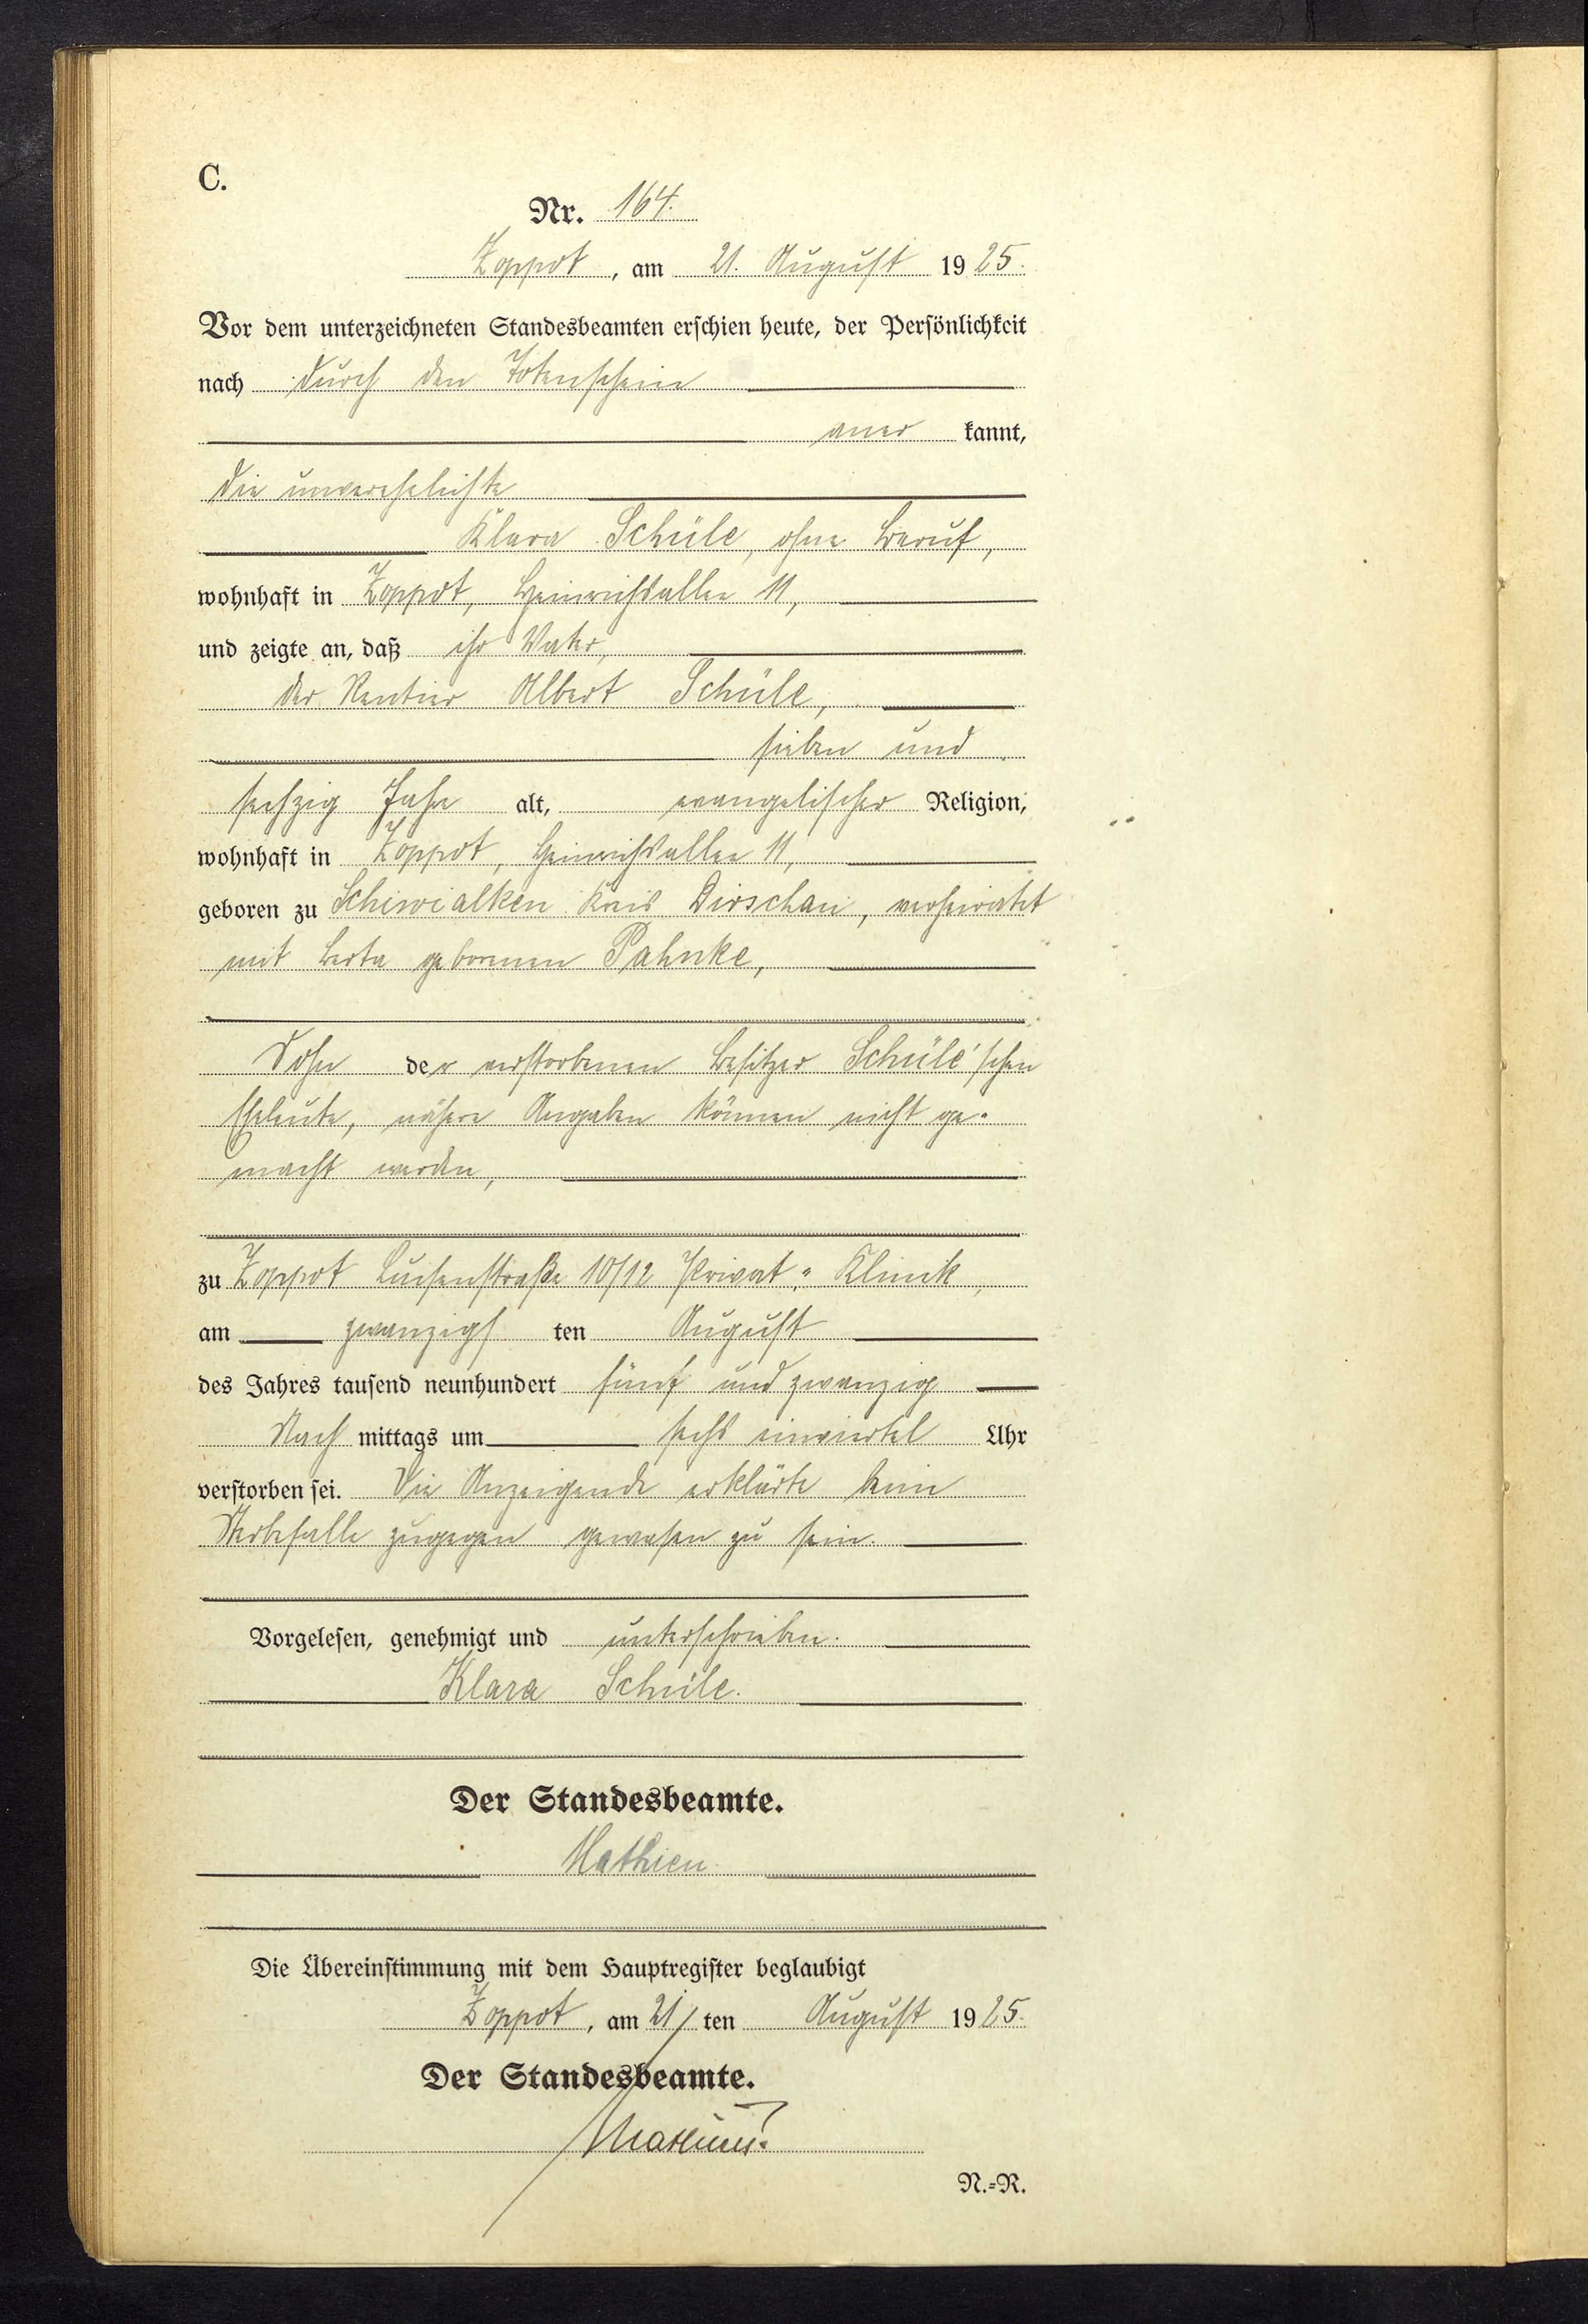 C.
Nr. 164.
Zoppot, am 21. August 1925.
Vor dem unterzeichneten Standesbeamten erschien heute, der Persönlichkeit
nach durch den Totenschein
aner kannt,
die unverehelichte
Klara Schüle, ohne Beruf,
wohnhaft in Zoppot, Heinrichsallee 11,
und zeigte an, daß ihr Vater,
der Rentier Albert Schüle,
sieben und
sechzig Jahre alt, evangelischer Religion,
wohnhaft in Zoppot, Heinrichsallee 11,
geboren zu Schiwialken Kreis Dirschau, verheiratet
mit Berta geborenen Pahnke,
Sohn der verstorbenen Besitzer Schüle'schen
Eheleute, nähere Angaben können nicht ge-
macht werden,
zu Zoppot Luisenstraße 10/12 Privat-Klinik,
am zwanzigsten August
des Jahres tausend neunhundert fünf und zwanzig
Nachmittags um sechs einviertel Uhr
verstorben sei. Die Anzeigende erklärte beim
Sterbefalle zugegen gewesen zu sein.
Vorgelesen, genehmigt und unterschrieben.
Klara Schüle.
Der Standesbeamte.
Die Übereinstimmung mit dem Hauptregister beglaubigt
Zoppot, am 21ten August 1925.
Der Standesbeamte.
N.=R.